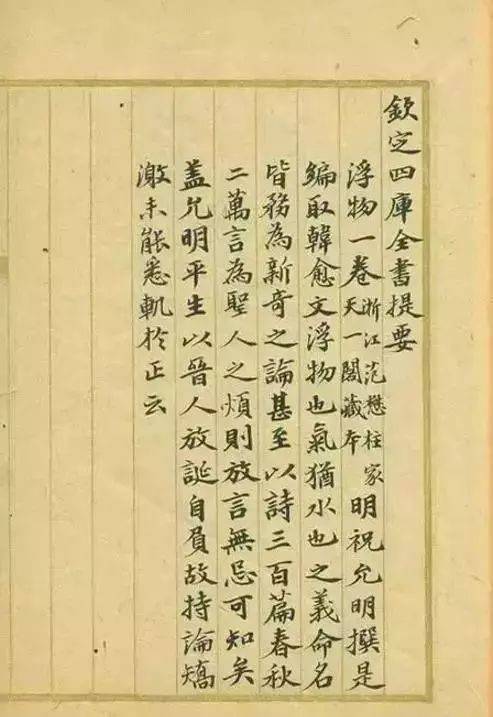 欽定四庫全書提要
浮物一卷浙江范懋柱家天一閣藏本明祝允明撰是
編取韓愈文浮物也氣猶水也之義命名
皆務為新奇之論甚至以詩三百篇春秋
二萬言為聖人之煩則放言無忌可知矣
盖允明平生以晉人放誕自負故持論矯
激未能悉軌於正云